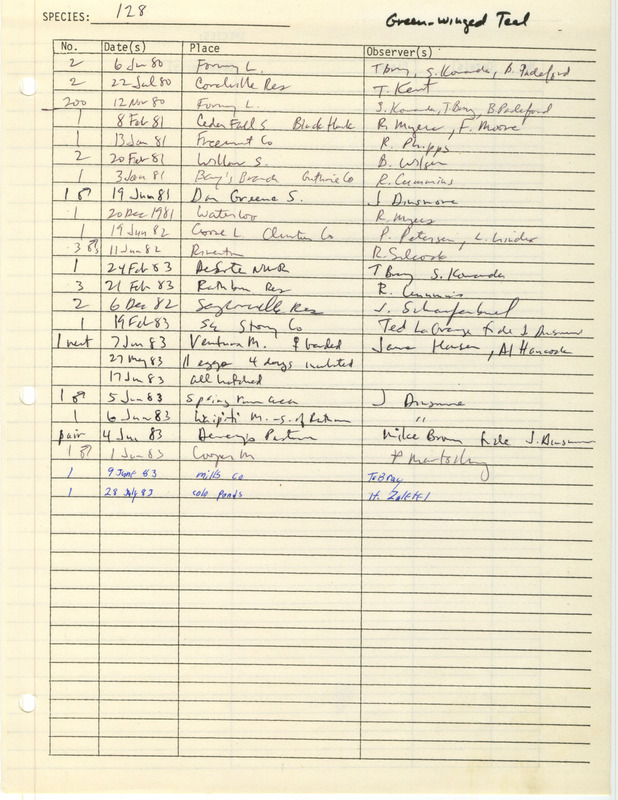 SPECIES: 128 Green-Winged Teal
No. Date(s) Place Observer(s)
2 6 Jun 80 Forney L. T Bray, S. Kovanda, B. Padelford
2 22 Jul 80 Coralville Res T. Kent
200 12 Nov 80 Forney L. S. Kovanda, T. Bray, B Padelford
1 8 Feb 81 Cedar Falls Black Hawk R. Myers, F. Moore
1 13 Jan 81 Fremont Co R. Phipps
2 20 Feb 81 Willow S. B. Wilson
1 3 Jan 81 Bay's Branch Guthrie Co R. Cummins
1 ♂ 19 Jun 81 Dan Greene S. J Dinsmore
1 20 Dec 1981 Waterloo R. Myers
1 19 Jun 82 Goose L. Clinton Co P. Petersen, L. Linder
3 ♂♂ 11 Jun 82 Riverton R. Silcock
1 24 Feb 83 DeSoto NWR T Bray S. Kovanda
3 21 Feb 83 Rathbun Res R. Cummins
2 6 Dec 82 Saylorville Res J. Schaufenbuel
1 19 Feb 83 Story Co Ted LaGrange fide J. Dinsmore
1 nest 7 Jun 83 Ventura M. ♀ banded Jane Hansen, Al Hancock
27 May 83 11 eggs 4 days incubated
17 Jun 83 all hatched
1 ♂ 5 Jun 83 Spring Run area J Dinsmore
1 6 Jun 83 M. - S. of Rathbun "
pair 4 Jun 83 Dewey's Pasture Mike Brown fide J. Dinsmore
1 ♂ 1 Jun 83 Cooper M
1 9 June 83 Mills Co T Bray
1 28 July 83 Colo Ponds H. Zaletel